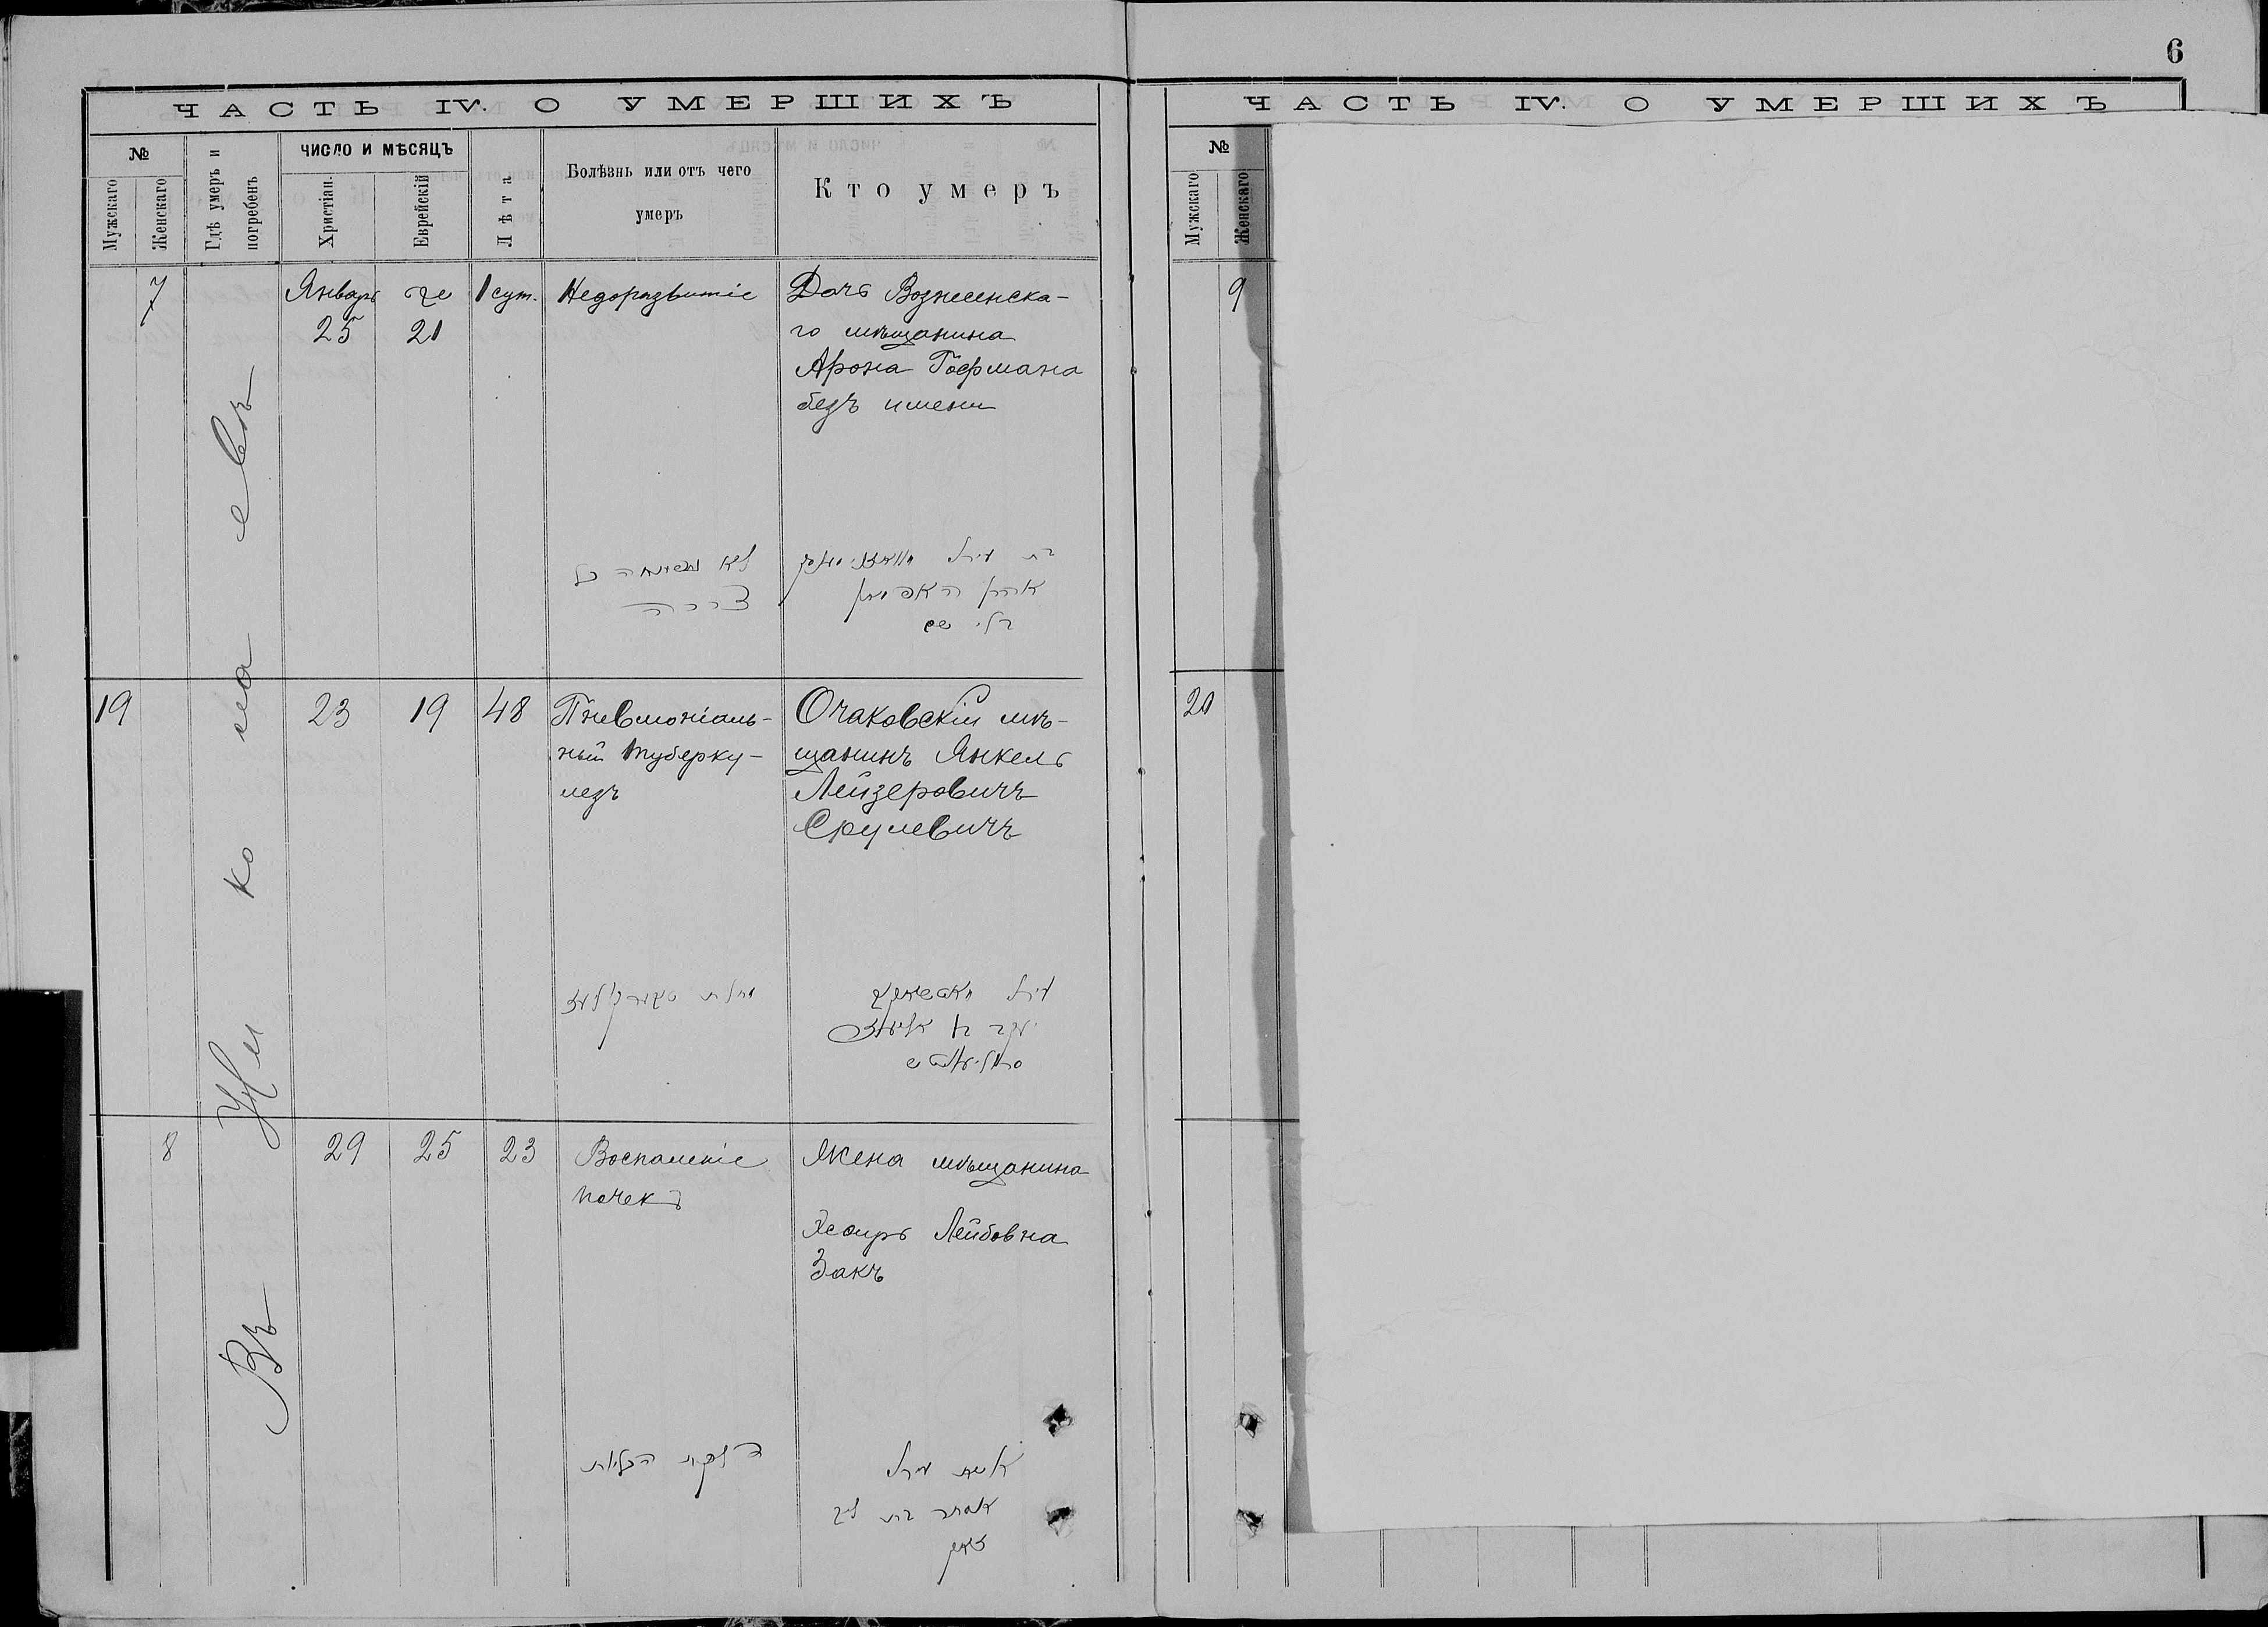 6
ЧАСТЬ IV. О УМЕРШИХЪ
№
Мужскаго
Женскаго
Гдѣ умеръ и
погребенъ
ЧИСЛО И МѢСЯЦЪ
Христіан.
Еврейскій
Лѣта
Болѣзнь или отъ чего
умеръ
Кто умеръ
Въ Николаевѣ
7
Январь
25
21
1 сут.
Недоразвитіе
Дочь Вознесенска-
го мѣщанина
Арона Гофмана
безъ имени
19
23
19
48
Пневмоніаль-
ный туберку-
лезъ
Очаковскій мѣ-
щанинъ Янкель
Лейзеровичъ
Срулевичъ
8
29
25
23
Воспаленіе
почекъ
דלקת הכליות
Жена мѣщанина
Эсѳирь Лейбовна
Закъ
אשת
אסתר בת ליב
זאק
ЧАСТЬ IV. О УМЕРШИХЪ
№
Мужскаго
Женскаго
9
20